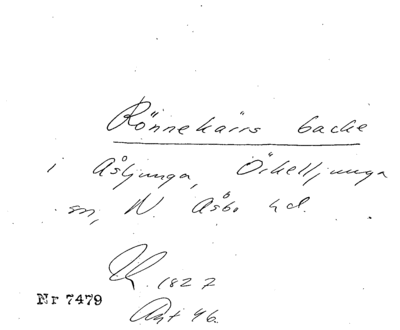 Rönnekärrs backe
i Åsljunga, Örkelljunga
sn, N. Åsbo hd.
1827
Nr 7479
46.